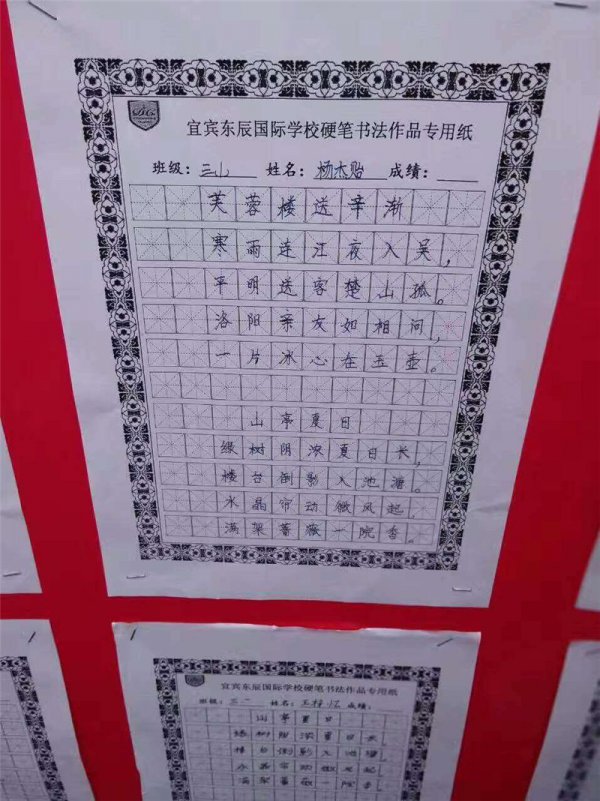 宜宾东辰国际学校硬笔书法作品专用纸
班级： 姓名：杨杰贻 成绩：
芙蓉楼送辛渐
寒雨连江夜入吴，
平明送客楚山孤。
洛阳亲友如相问，
一片冰心在玉壶。
山亭夏日
绿树阴浓夏日长，
楼台倒影入池塘。
水晶帘动微风起，
满架蔷薇一院香。
宜宾东辰国际学校硬笔书法作品专用纸
班级： 姓名： 成绩：
山亭夏日
绿树阴浓夏日长
楼台倒影入池塘
水晶帘动微风起
满架蔷薇一院香